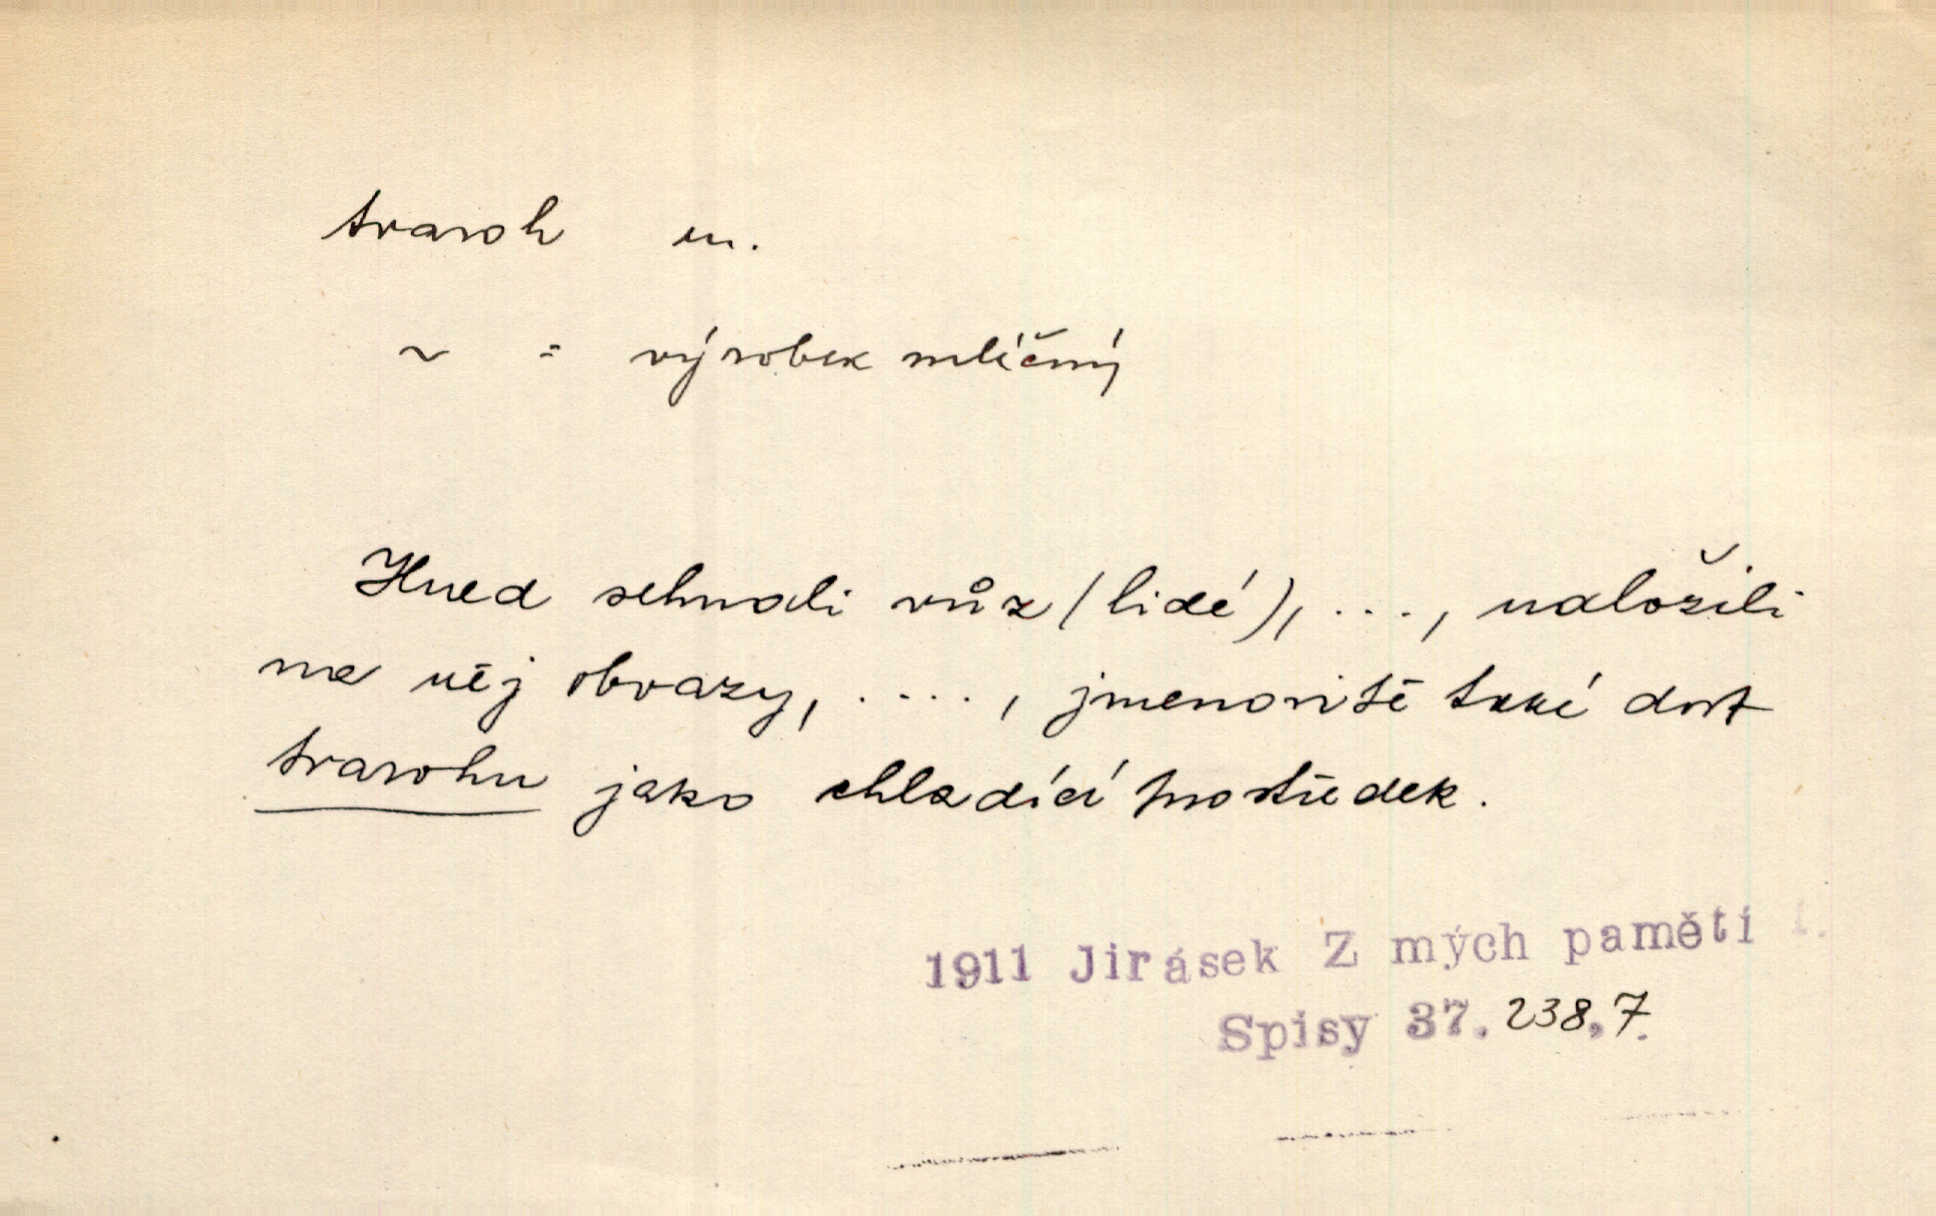 tvaroh m.
~ = výrobek mlíčný
Hned sehnali vůz (lidé), ..., naložili
na něj obvazy, ...., jmenovitě také dost
tvarohu jako chladící prostředek.
1911 Jirásek Z mých pamětí I.
Spisy 37. 238,7.